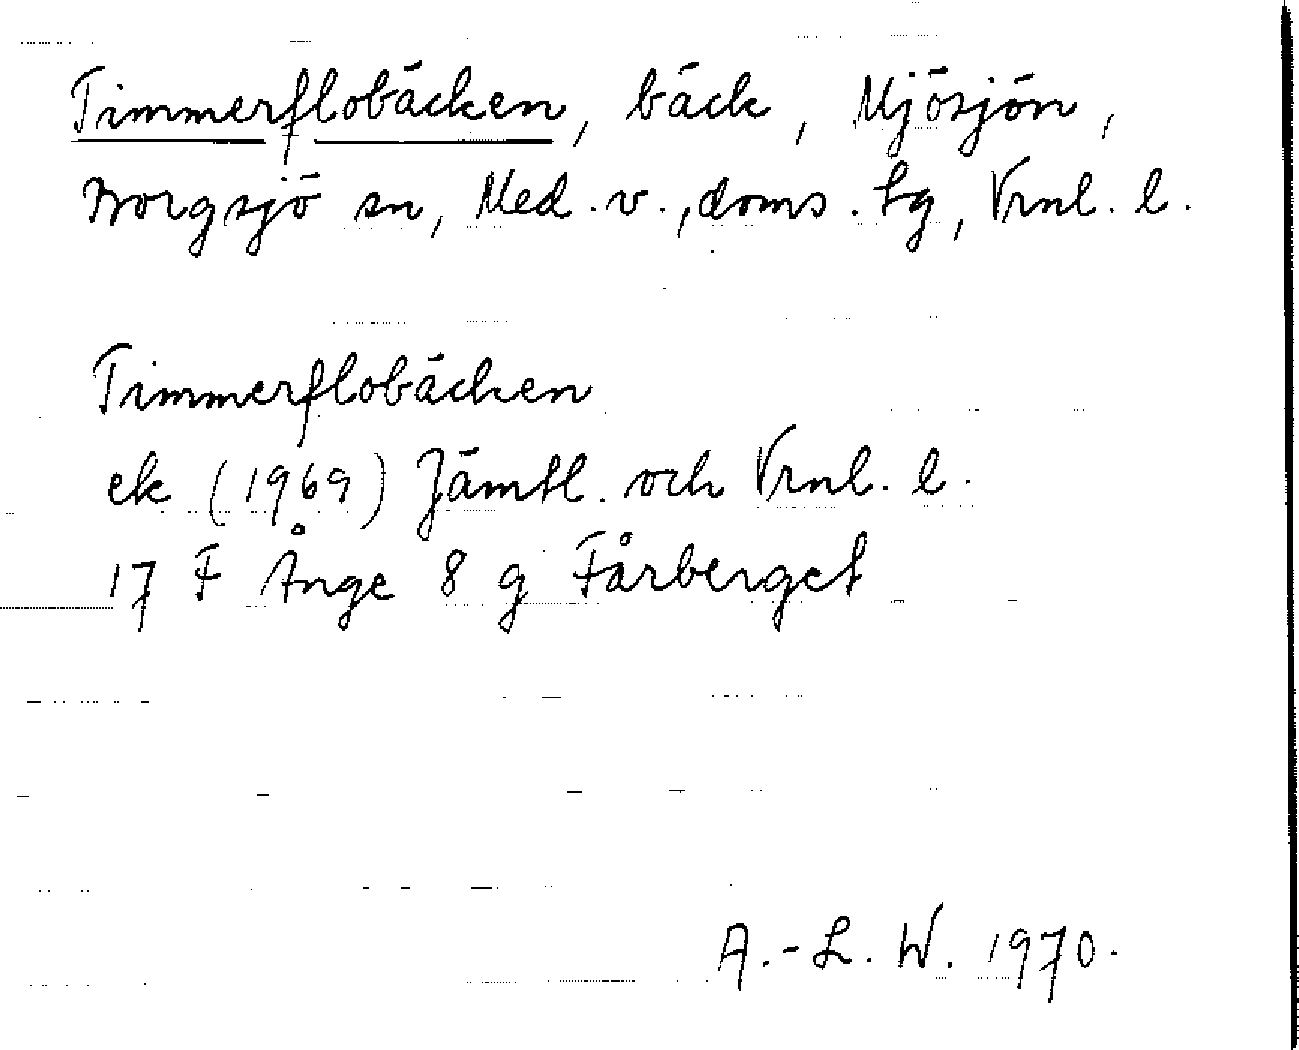 Timmerflobäcken, bäck, Mjösjön,
Borgsjö sn, Med. v., doms. tg, Vrnl. l.
Timmerflobäcken
ek (1969) Jämtl. och Vrnl. l.
17 F Ånge 8 g Fårberget
A.-L. W. 1970.